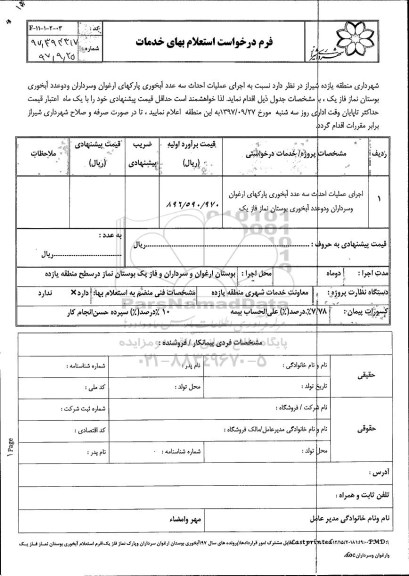 فرم درخواست استعلام بهای خدمات
کد : F-۱۱-۰۱-۲-۰۳
شماره:
۹۷/۹/۲۵
شهرداری منطقه یازده شیراز در نظر دارد نسبت به اجرای عملیات احداث سه عدد آبخوری پارکهای ارغوان وسرداران ودوعدد آبخوری
بوستان نماز فاز یک ، با مشخصات جدول ذیل اقدام نماید. لذا خواهشمند است حداقل قیمت پیشنهادی خود را با یک ماه اعتبار قیمت
حداکثر تاپایان وقت اداری روز سه شنبه مورخ ۱۳۹۷/۰۹/۲۷به این منطقه اعلام نمایید ، تا در صورت صرفه و صلاح شهرداری شیراز
برابر مقررات اقدام گردد.
ردیف
مشخصات پروژه/ خدمات درخواستی
قیمت برآورد اولیه (ریال)
ضریب پیشنهادی
قیمت پیشنهادی (ریال)
ملاحظات
۱
اجرای عملیات احداث سه عدد آبخوری پارکهای ارغوان
وسرداران ودوعدد آبخوری بوستان نماز فاز یک
۸۹۲/۵۹۰/۹۷۰
قیمت پیشنهادی به حروف : ریال
به عدد :
ریال
مدت اجرا : دوماه
محل اجرا : بوستان ارغوان و سرداران و فاز یک بوستان نماز درسطح منطقه یازده
دستگاه نظارت پروژه : معاونت خدمات شهری منطقه یازده
مشخصات فنی منضم به استعلام بها: دارد× ندارد
کسورات پیمان : ۷/۷۸٪درصد(٪) علی الحساب بیمه
۱۰ ٪درصد(٪) سپرده حسن انجام کار
ParsNamadData
پایگاه
۰۲۱-۸۸۳۴۹۶۷۰-۵
مشخصات فردی پیمانکار / فروشنده :
حقیقی
نام و نام خانوادگی :
نام پدر:
شماره شناسنامه :
تاریخ تولد :
محل تولد :
کد ملی :
حقوقی
نام شرکت / فروشگاه :
شماره ثبت شرکت :
نام و نام خانوادگی مدیرعامل/مالک فروشگاه :
کد اقتصادی :
محل تولد :
شماره شناسنامه :
نام پدر :
آدرس :
تلفن ثابت و همراه :
نام ونام خانوادگی مدیر عامل
مهر وامضاء
1 Page